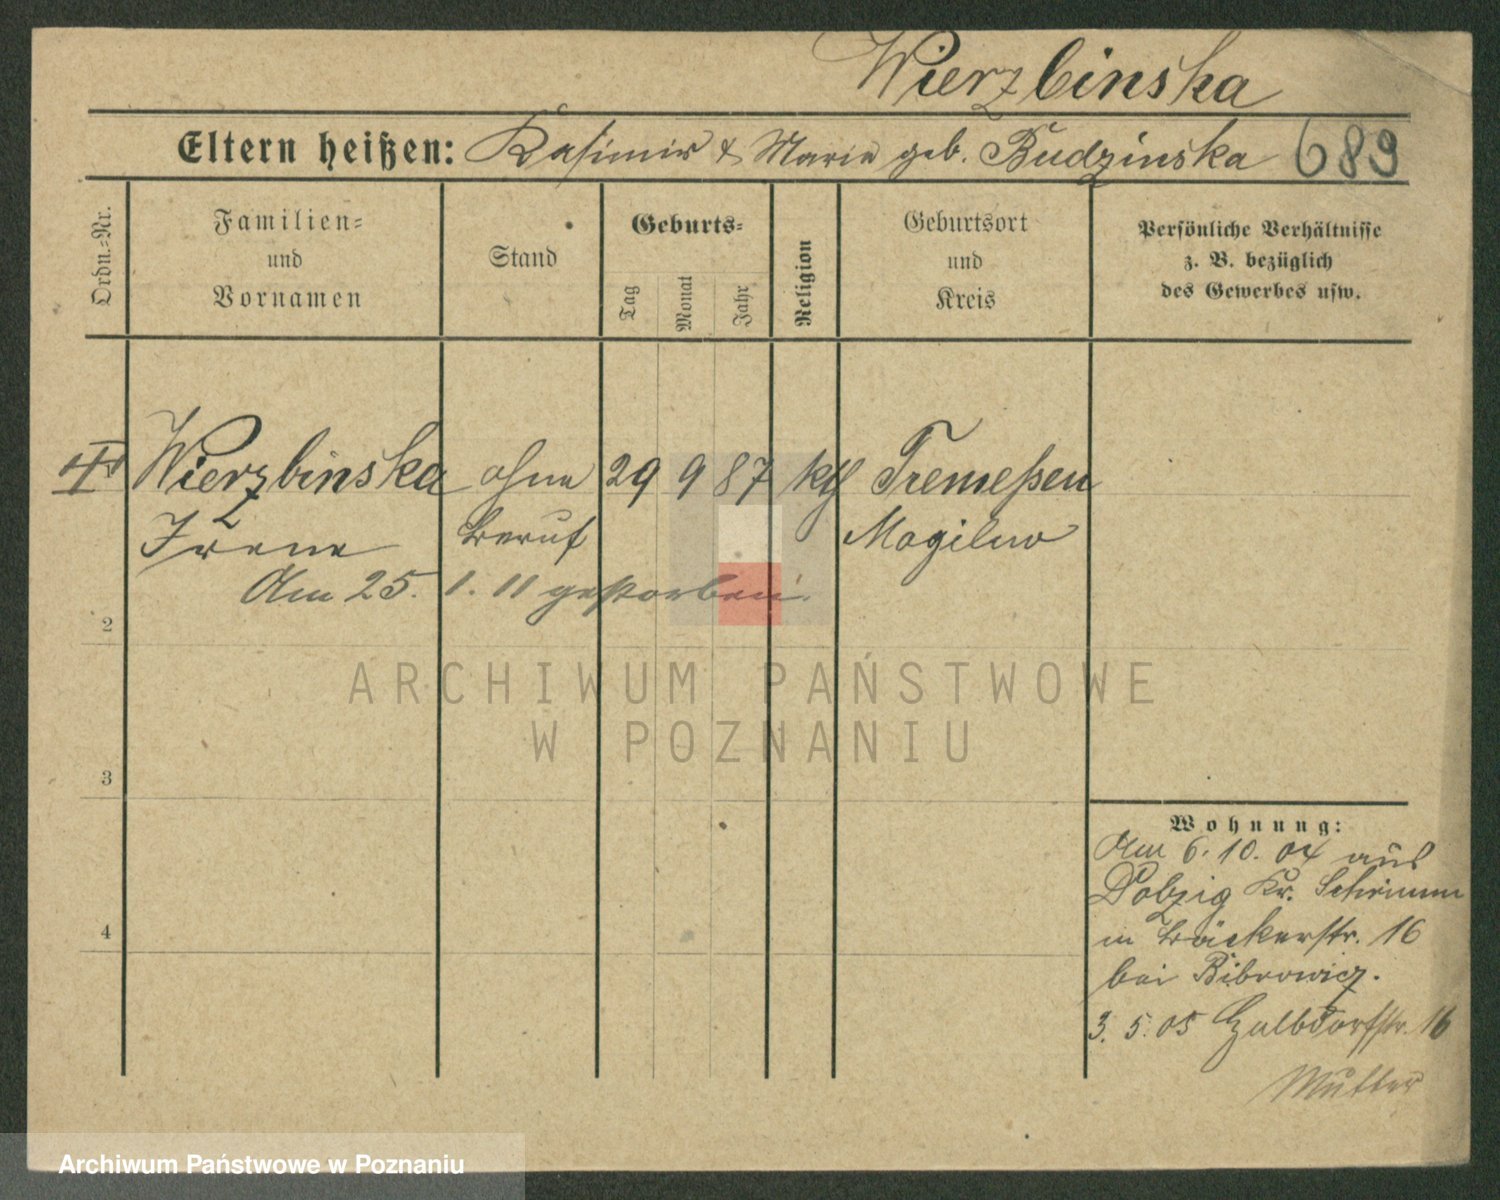 Wierzbinska
Eltern heißen: Kasimir & Marie geb. Budzinska 689
Ordn.-Nr.
Familien-
und
Vornamen
Stand
Geburts-
Tag
Monat
Jahr
Religion
Geburtsort
und
Kreis
Persönliche Verhältnisse
z. B. bezüglich
des Gewerbes usw.
Wierzbinska ohne 29 9 87 kth Tremeßen
Irene Beruf Mogilno
Am 25. 1. 11 gestorben.
2
3
4
Wohnung:
Am 6. 10. 04 aus
Dobzig Kr. Schrimm
in Bäckerstr. 16
bei Bibrowicz.
3. 5. 05 Halbdorfstr. 16
Mutter
ARCHIWUM PAŃSTWOWE
W POZNANIU
Archiwum Państwowe w Poznaniu